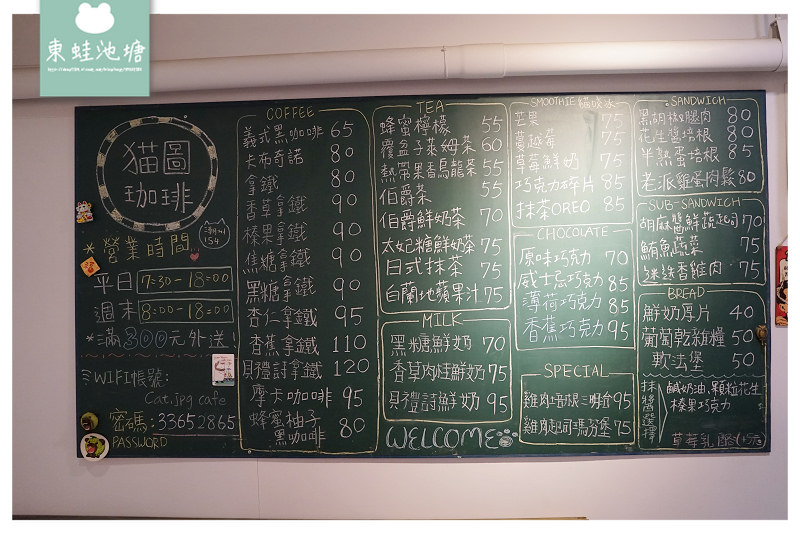 東蛙池塘
貓圖
珈琲
*營業時間
平日 7:30-18:00
週末 8:00-18:00
*滿300元外送!
WIFI帳號:
Cat.jpg cafe
密碼:33652865
PASSWORD
COFFEE
義式黑咖啡 65
卡布奇諾 80
拿鐵 80
香草拿鐵 90
榛果拿鐵 90
焦糖拿鐵 90
黑糖拿鐵 90
杏仁拿鐵 95
香蕉拿鐵 110
貝禮詩拿鐵 120
摩卡咖啡 95
蜂蜜柚子
黑咖啡 80
TEA
蜂蜜檸檬 55
覆盆子萊姆茶 60
熱帶果香烏龍茶 55
伯爵茶 55
伯爵鮮奶茶 70
太妃糖鮮奶茶 75
日式抹茶 75
白蘭地蘋果汁 75
MILK
黑糖鮮奶 70
香草肉桂鮮奶 75
貝禮詩鮮奶 95
WELCOME
SMOOTHIE
芒果 75
蔓越莓 75
草莓鮮奶 75
巧克力碎片 85
抹茶OREO 85
CHOCOLATE
原味巧克力 70
威士忌巧克力 85
薄荷巧克力 85
香蕉巧克力 95
SPECIAL
雞肉培根三明治 95
雞肉起司瑪芬堡 75
SANDWICH
黑胡椒腿肉 80
花生醬培根 80
半熟蛋培根 85
老派雞蛋肉鬆 80
SUB-SANDWICH
胡麻醬鮮蔬起司 70
鮪魚蔬菜 75
迷迭香雞肉 75
BREAD
鮮奶厚片 40
葡萄乾雜糧 50
軟法堡 50
抹醬選擇
鹹奶油,顆粒花生
榛果巧克力